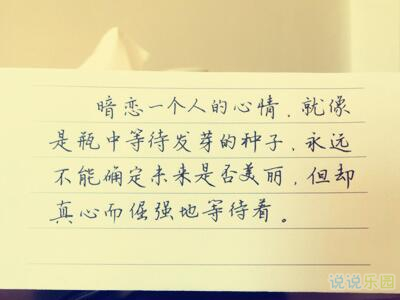 暗恋一个人的心情，就像
是瓶中等待发芽的种子，永远
不能确定未来是否美丽，但却
真心而倔强地等待着。
说说乐园